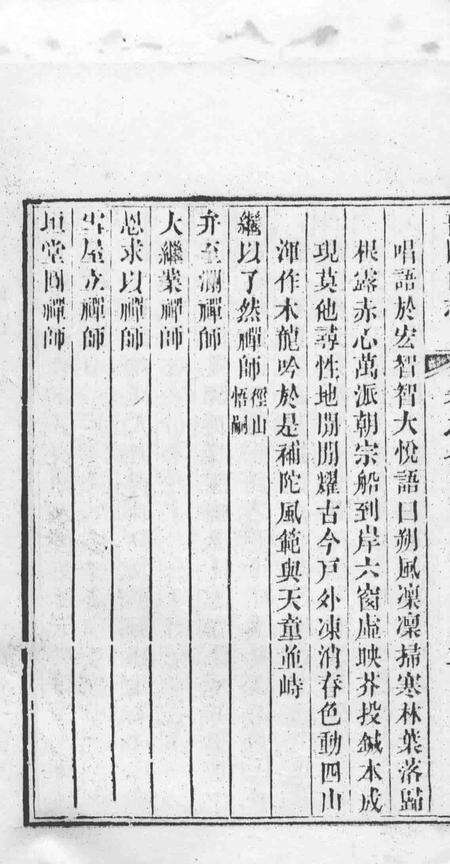 唱語於宏智智大悅語曰朔風凜凜掃寒林葉落歸
根露赤心萬派朝宗船到岸六窗虛映芥投鍼本成
現莫他尋性地閒閒耀古今戶外凍消春色動四山
渾作木龍吟於是補陀風範與天童並峙
繼以了然禪師徑山悟嗣
弁至瀾禪師
大繼業禪師
思求以禪師
雪屋立禪師
垣堂圓禪師